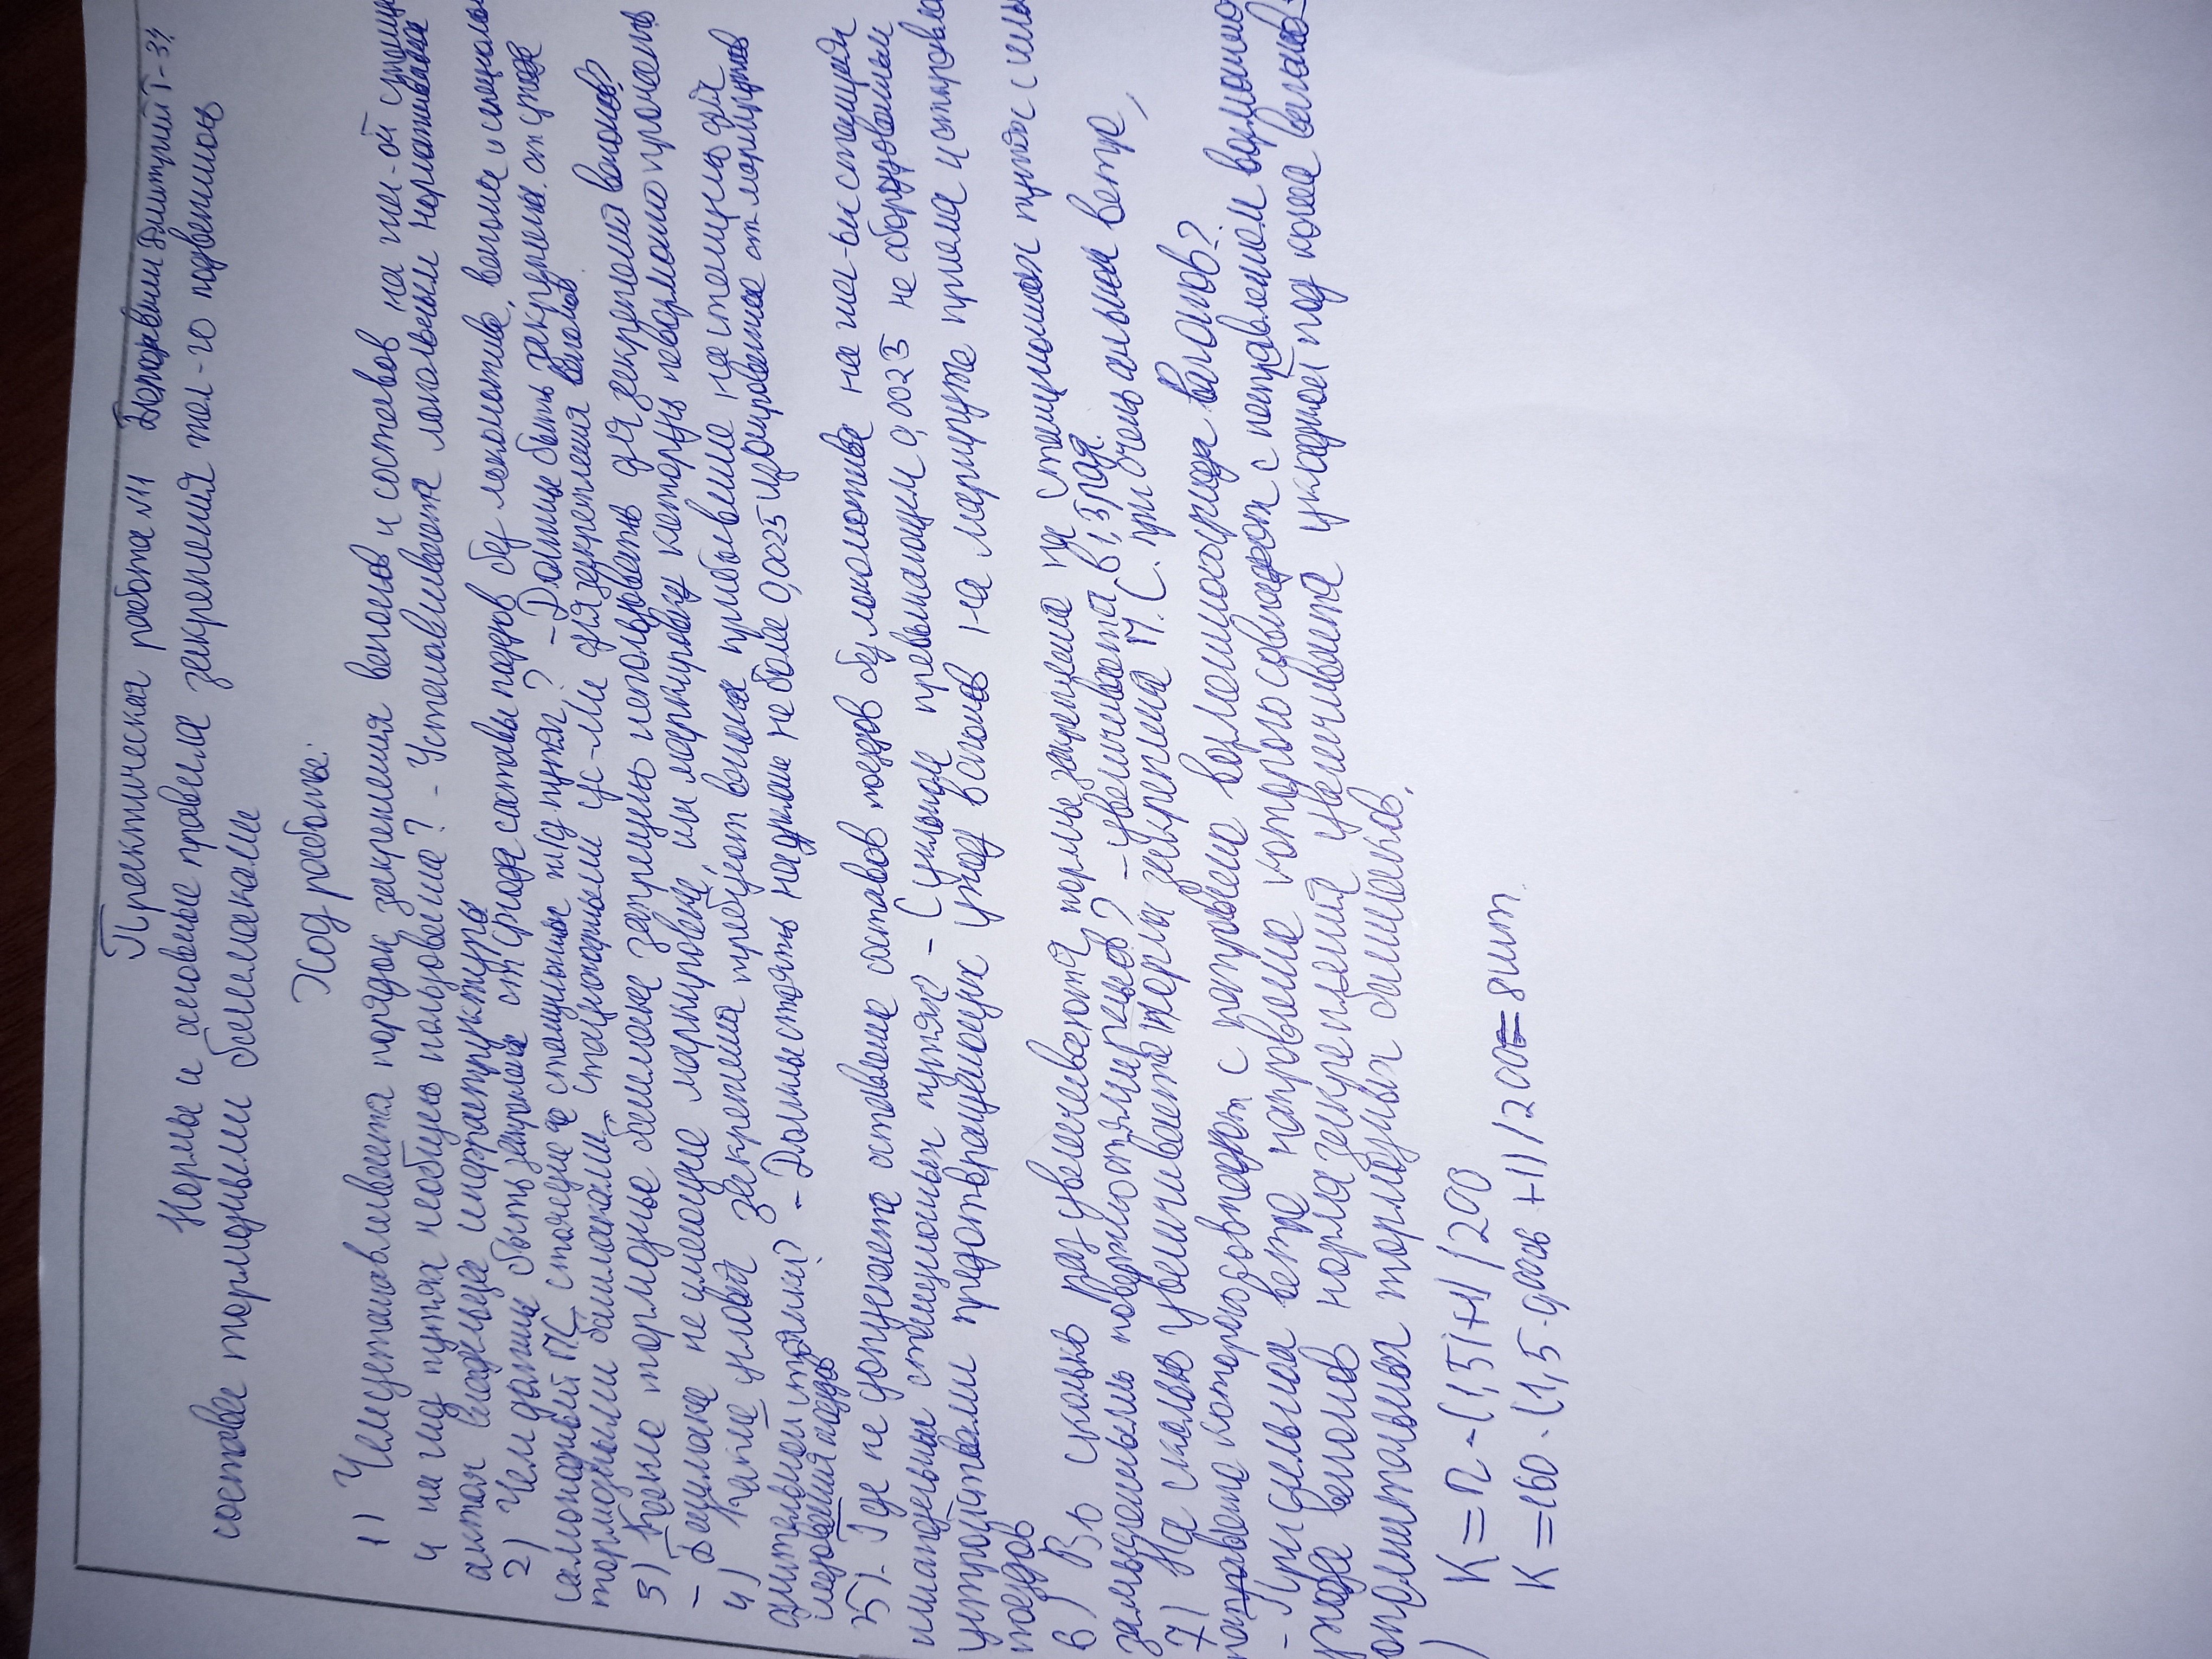 Практическая работа №11 Дмитрий Т-31
Нормы и основные правила закрепления
состава тормозными башмаками
Ход работы:
1) Чем устанавливается порядок закрепления вагонов и составов на
и на путях необщего пользования? - Устанавливается локальным нормативным
актом владельца инфраструктуры
2) Чем должны быть закреплены от ухода составы поездов без локомотива, вагоны и
самоходный ПС стоящие на станционных путях? - Должны быть закреплены от ухода
тормозными башмаками, стационарными для закрепления вагонов
3) Какие тормозные башмаки запрещено использовать для закрепления вагонов?
- Башмаки не имеющие маркировки, или маркировку которых невозможно прочесть
4) Какие условия закрепления требуют вагоны прибывшие на станцию для
длительной стоянки? - Должны стоять на уклоне не более 0,0025 изолированные от маршрутов
следования поездов
5) Где не допускается оставление составов поездов без локомотива на станции
станционных путях? - С уклоном превышающем 0,0025 не оборудованным
устройствами предотвращающих уход вагонов на маршруте приема и
поездов
6) Во сколько раз увеличиваются нормы закрепления на станционных путях с
замасленными поверхностями рельсов? - увеличивается в 1,5 раза.
7) На сколько увеличивается норма закрепления П.С. при очень сильном ветре,
направление которого совпадает с направлением возможного ухода вагонов?
- При сильном ветре направление которого совпадает с направлением возможного
ухода вагонов норма закрепления увеличивается укладкой под колеса вагонов
тормозных башмаков.
K = n · (1,5i+1) / 200
K = 160 · (1,5 · +1) / 200 = 8 шт.